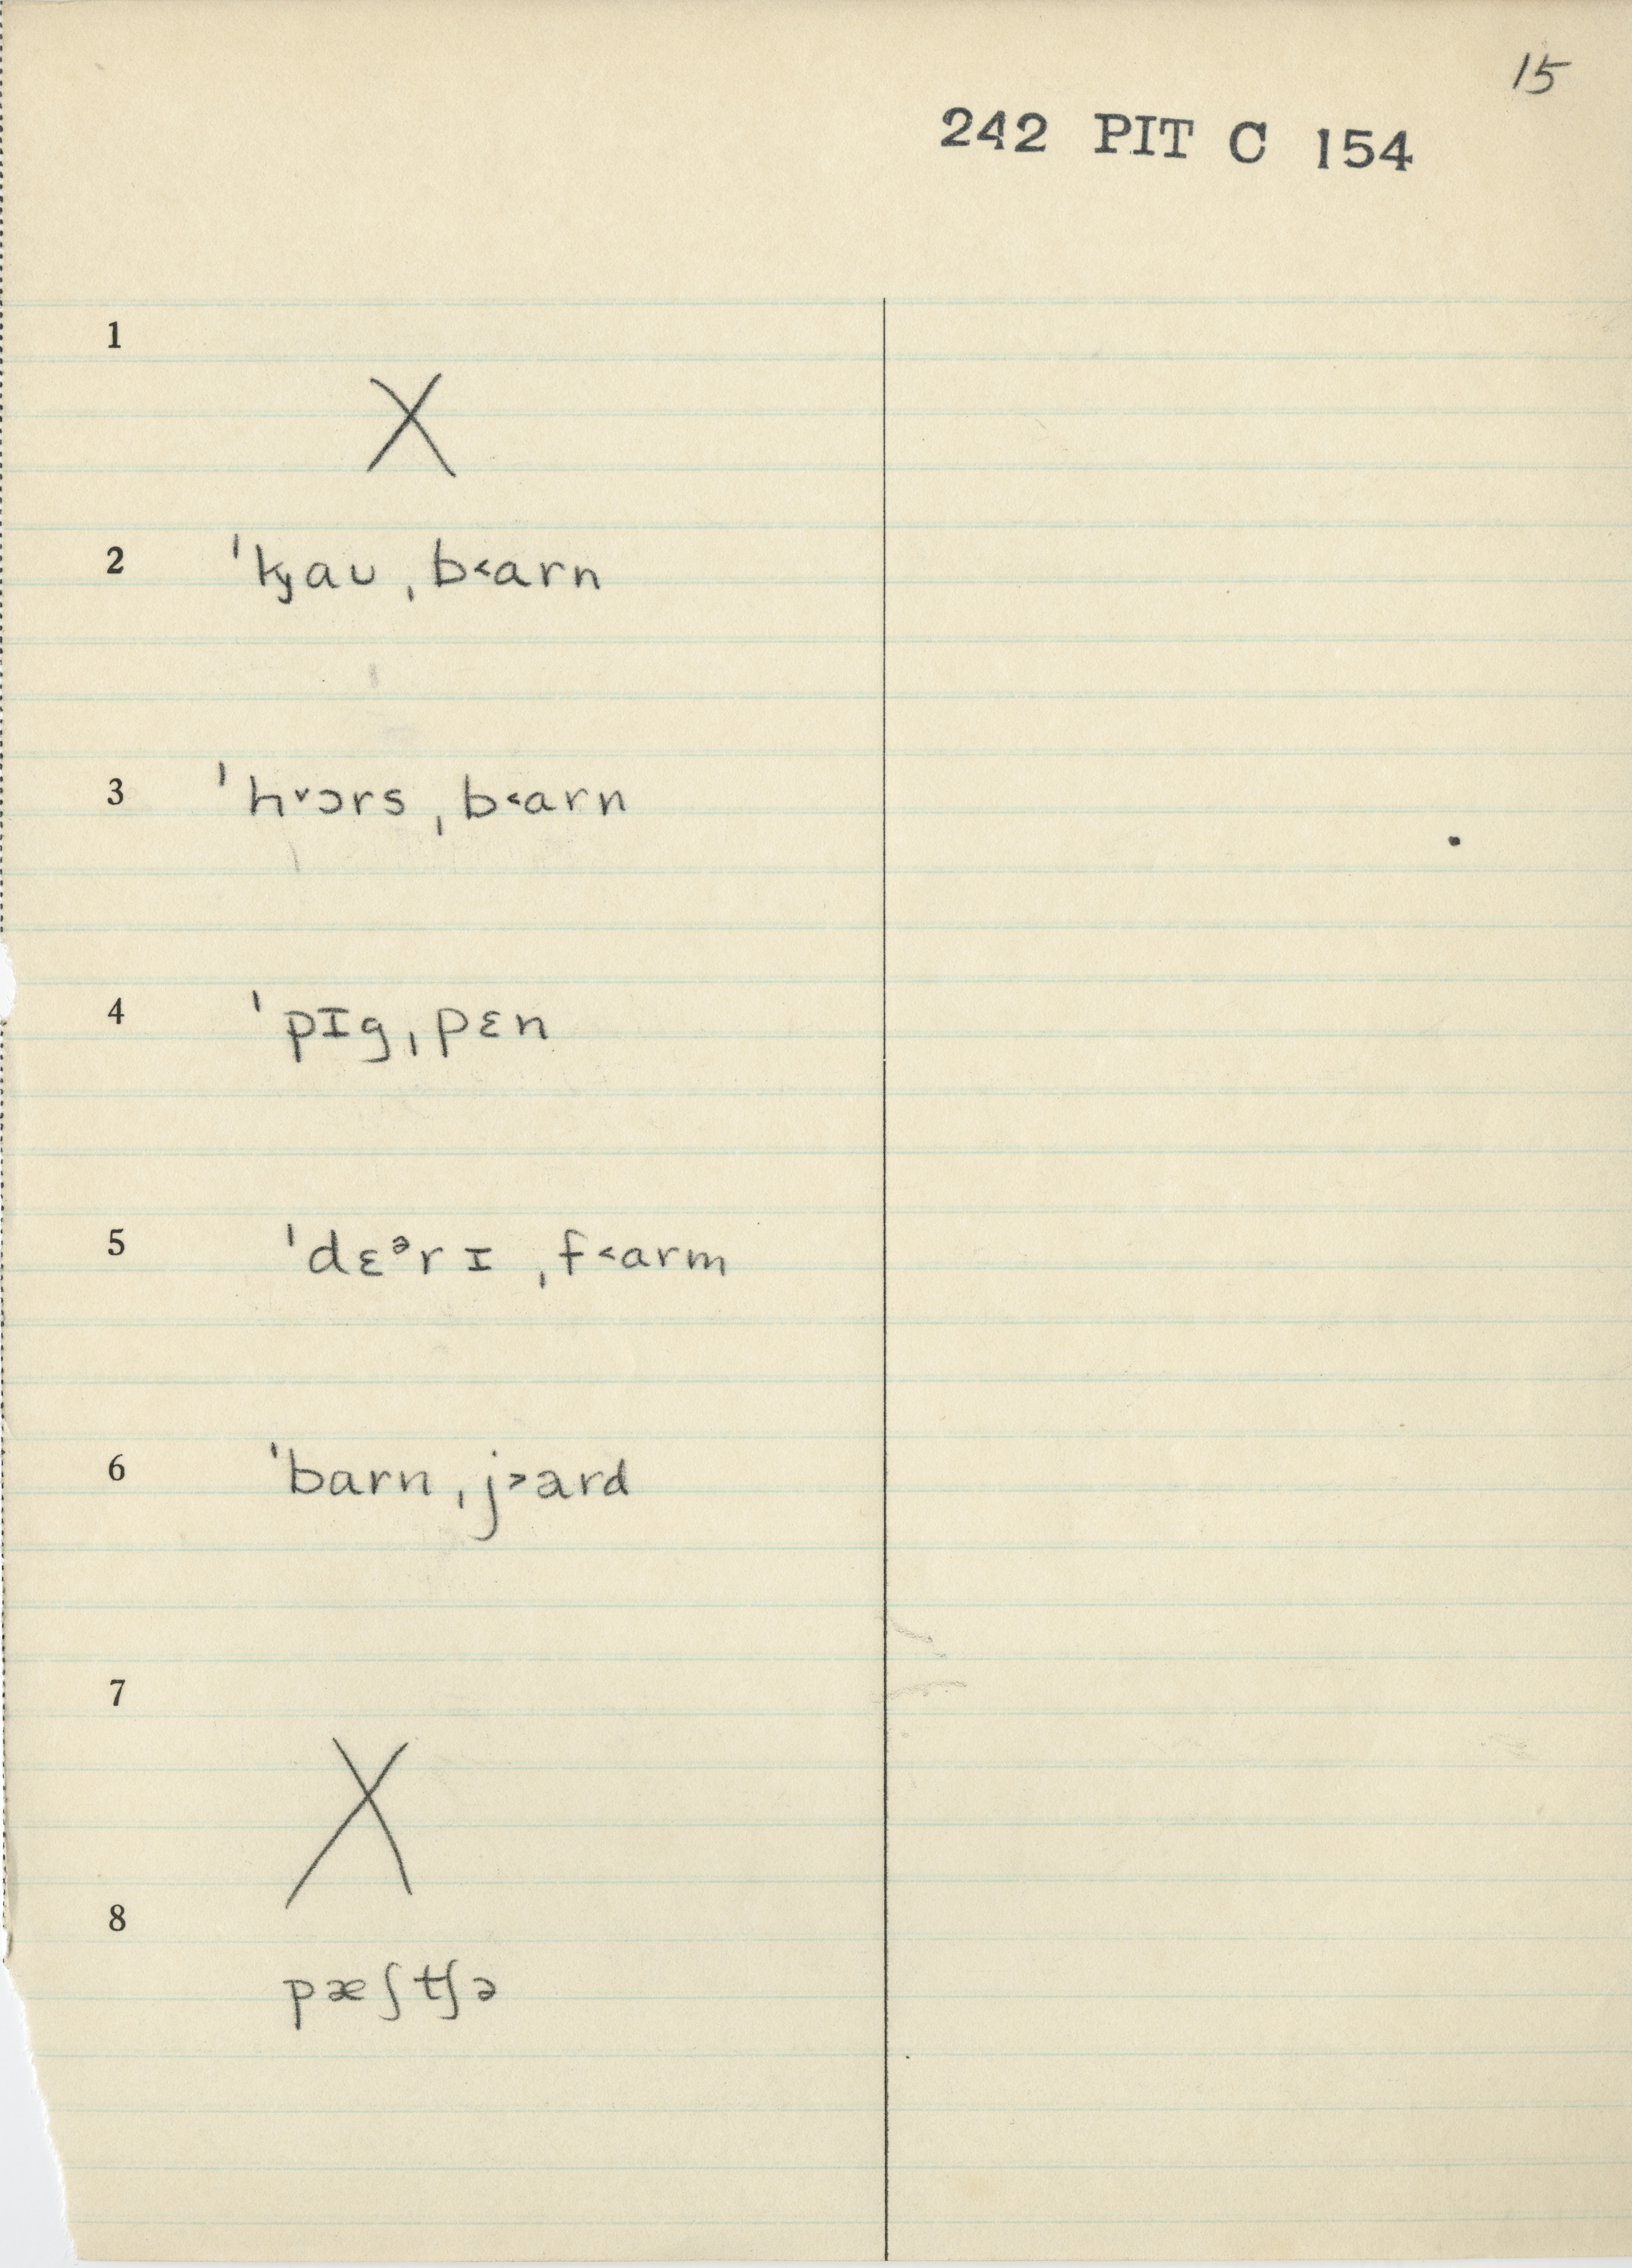 15
242 PIT C 154
1
X
2 ˈkɟaʊ ˌb˂arn
3 ˈh˅ɔrs ˌb˂arn
4 ˈpɪg ˌpɛn
5 ˈdɛᵊrɪ ˌf˂arm
6 ˈbarn ˌj˃ard
7
X
8
pæʃtʃə